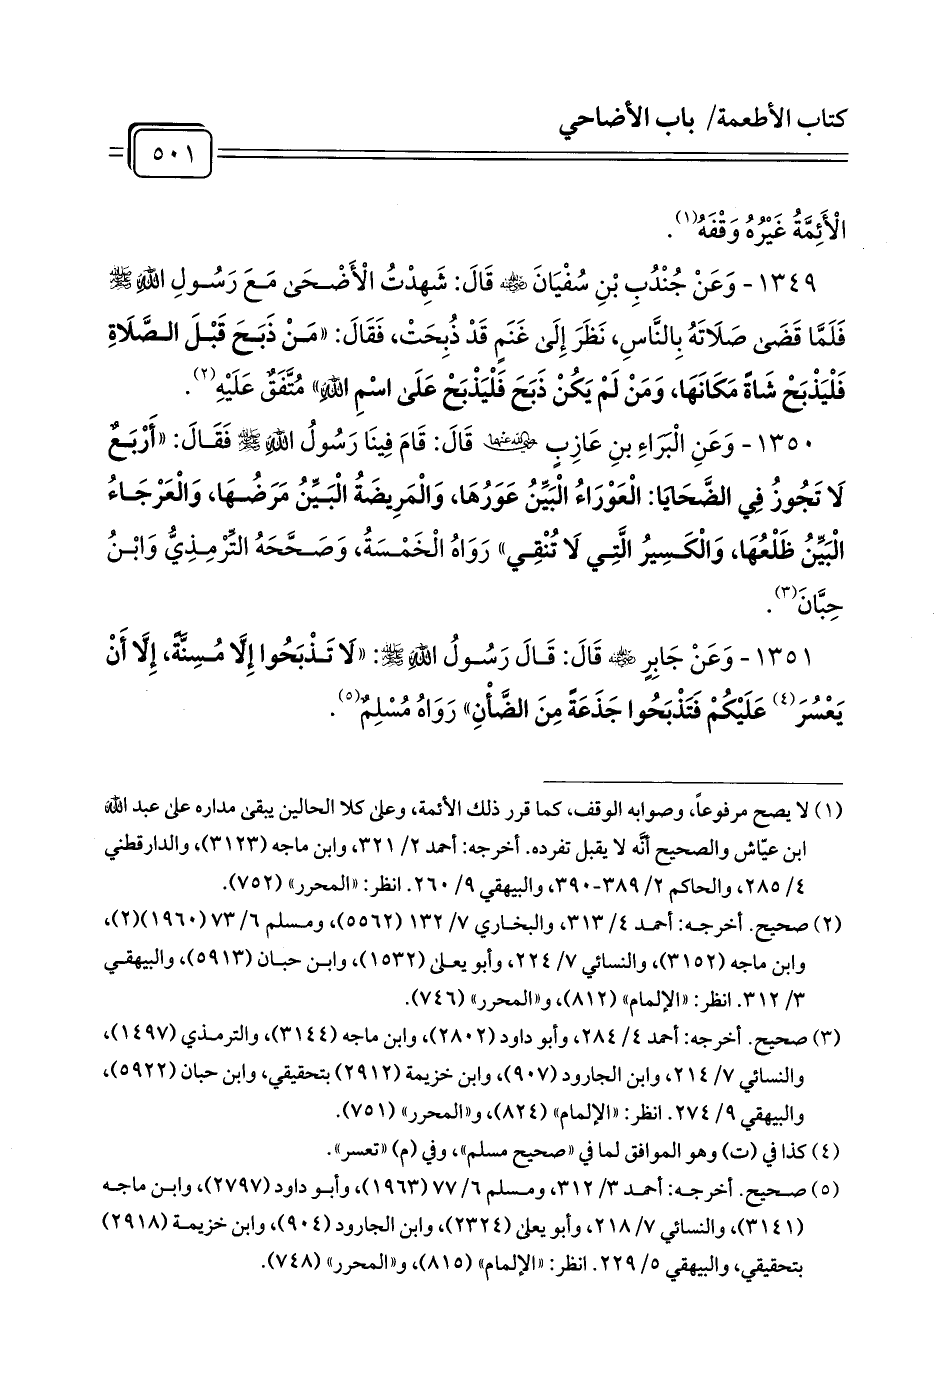 كتاب الأطعمة/ باب الأضاحي
٥٠١
الْأَئِمَّةُ غَيْرُهُ وَقْفَهُ(١).
١٣٤٩- وَعَنْ جُنْدُبِ بْنِ سُفْيَانَ رضي الله عنه قَالَ: شَهِدْتُ الْأَضْحَى مَعَ رَسُولِ اللهِ ﷺ
فَلَمَّا قَضَى صَلَاتَهُ بِالنَّاسِ، نَظَرَ إِلَى غَنَمٍ قَدْ ذُبِحَتْ، فَقَالَ: «مَنْ ذَبَحَ قَبْلَ الصَّلَاةِ
فَلْيَذْبَحْ شَاةً مَكَانَهَا، وَمَنْ لَمْ يَكُنْ ذَبَحَ فَلْيَذْبَحْ عَلَى اسْمِ اللهِ» مُتَّفَقٌ عَلَيْهِ(٢).
١٣٥٠- وَعَنِ الْبَرَاءِ بنِ عَازِبٍ رضي الله عنهما قَالَ: قَامَ فِينَا رَسُولُ اللهِ ﷺ فَقَالَ: «أَرْبَعٌ
لَا تَجُوزُ فِي الضَّحَايَا: الْعَوْرَاءُ الْبَيِّنُ عَوَرُهَا، وَالْمَرِيضَةُ الْبَيِّنُ مَرَضُهَا، وَالْعَرْجَاءُ
الْبَيِّنُ ظَلْعُهَا، وَالْكَسِيرُ الَّتِي لَا تُنْقِي» رَوَاهُ الْخَمْسَةُ، وَصَحَّحَهُ التِّرْمِذِيُّ وَابْنُ
حِبَّانَ(٣).
١٣٥١- وَعَنْ جَابِرٍ رضي الله عنه قَالَ: قَالَ رَسُولُ اللهِ ﷺ: «لَا تَذْبَحُوا إِلَّا مُسِنَّةً، إِلَّا أَنْ
يَعْسُرَ(٤) عَلَيْكُمْ فَتَذْبَحُوا جَذَعَةً مِنَ الضَّأْنِ» رَوَاهُ مُسْلِمٌ(٥).
(١) لا يصح مرفوعاً، وصوابه الوقف، كما قرر ذلك الأئمة، وعلى كلا الحالين يبقى مداره على عبد الله
ابن عيّاش والصحيح أنَّه لا يقبل تفرده. أخرجه: أحمد ٢/ ٣٢١، وابن ماجه (٣١٢٣)، والدارقطني
٤/ ٢٨٥، والحاكم ٢/ ٣٨٩-٣٩٠، والبيهقي ٩/ ٢٦٠. انظر: «المحرر» (٧٥٢).
(٢) صحيح. أخرجه: أحمد ٤/ ٣١٣، والبخاري ٧/ ١٣٢ (٥٥٦٢)، ومسلم ٦/ ٧٣ (١٩٦٠)(٢)،
وابن ماجه (٣١٥٢)، والنسائي ٧/ ٢٢٤، وأبو يعلى (١٥٣٢)، وابن حبان (٥٩١٣)، والبيهقي
٣/ ٣١٢. انظر: «الإلمام» (٨١٢)، و«المحرر» (٧٤٦).
(٣) صحيح. أخرجه: أحمد ٤/ ٢٨٤، وأبو داود (٢٨٠٢)، وابن ماجه (٣١٤٤)، والترمذي (١٤٩٧)،
والنسائي ٧/ ٢١٤، وابن الجارود (٩٠٧)، وابن خزيمة (٢٩١٢) بتحقيقي، وابن حبان (٥٩٢٢)،
والبيهقي ٩/ ٢٧٤. انظر: «الإلمام» (٨٢٤)، و«المحرر» (٧٥١).
(٤) كذا في (ت) وهو الموافق لما في «صحيح مسلم»، وفي (م) «تعسر».
(٥) صحيح. أخرجه: أحمد ٣/ ٣١٢، ومسلم ٦/ ٧٧ (١٩٦٣)، وأبو داود (٢٧٩٧)، وابن ماجه
(٣١٤١)، والنسائي ٧/ ٢١٨، وأبو يعلى (٢٣٢٤)، وابن الجارود (٩٠٤)، وابن خزيمة (٢٩١٨)
بتحقيقي، والبيهقي ٥/ ٢٢٩. انظر: «الإلمام» (٨١٥)، و«المحرر» (٧٤٨).